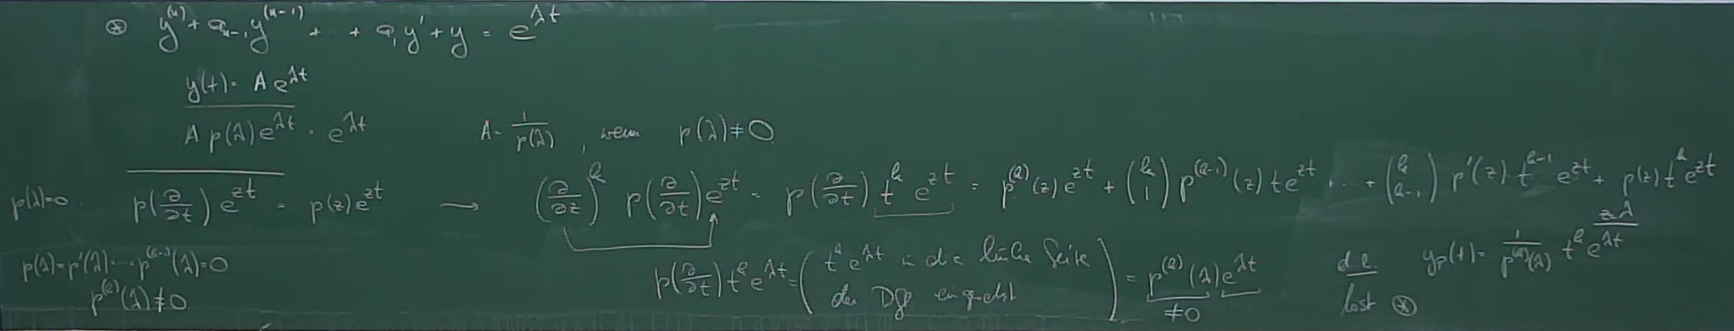 ⊛ y^{(n)} + a_{n-1} y^{(n-1)} + ⋯ + a_1 y' + y = e^{λt}
y(t) = A e^{λt}
A p(λ) e^{λt} = e^{λt}    A = \frac{1}{p(λ)}, wenn p(λ) ≠ 0
p(λ)=0: p(\frac{∂}{∂t}) e^{zt} = p(z) e^{zt} ⟶ (\frac{∂}{∂z})^k p(\frac{∂}{∂t}) e^{zt} = p(\frac{∂}{∂t}) t^k e^{zt} = p^{(k)}(z) e^{zt} + \binom{k}{1} p^{(k-1)}(z) t e^{zt} + ⋯ + \binom{k}{k-1} p'(z) t^{k-1} e^{zt} + p(z) t^k e^{zt}
z=λ
p(λ) = p'(λ) = ⋯ = p^{(k-1)}(λ) = 0
p^{(k)}(λ) ≠ 0
p(\frac{∂}{∂t}) t^k e^{λt} = ( t^k e^{λt} in die linke Seite
der Dgl eingesetzt ) = p^{(k)}(λ) e^{λt}
≠0
d.h. y_p(t) = \frac{1}{p^{(k)}(λ)} t^k e^{λt}
löst ⊛